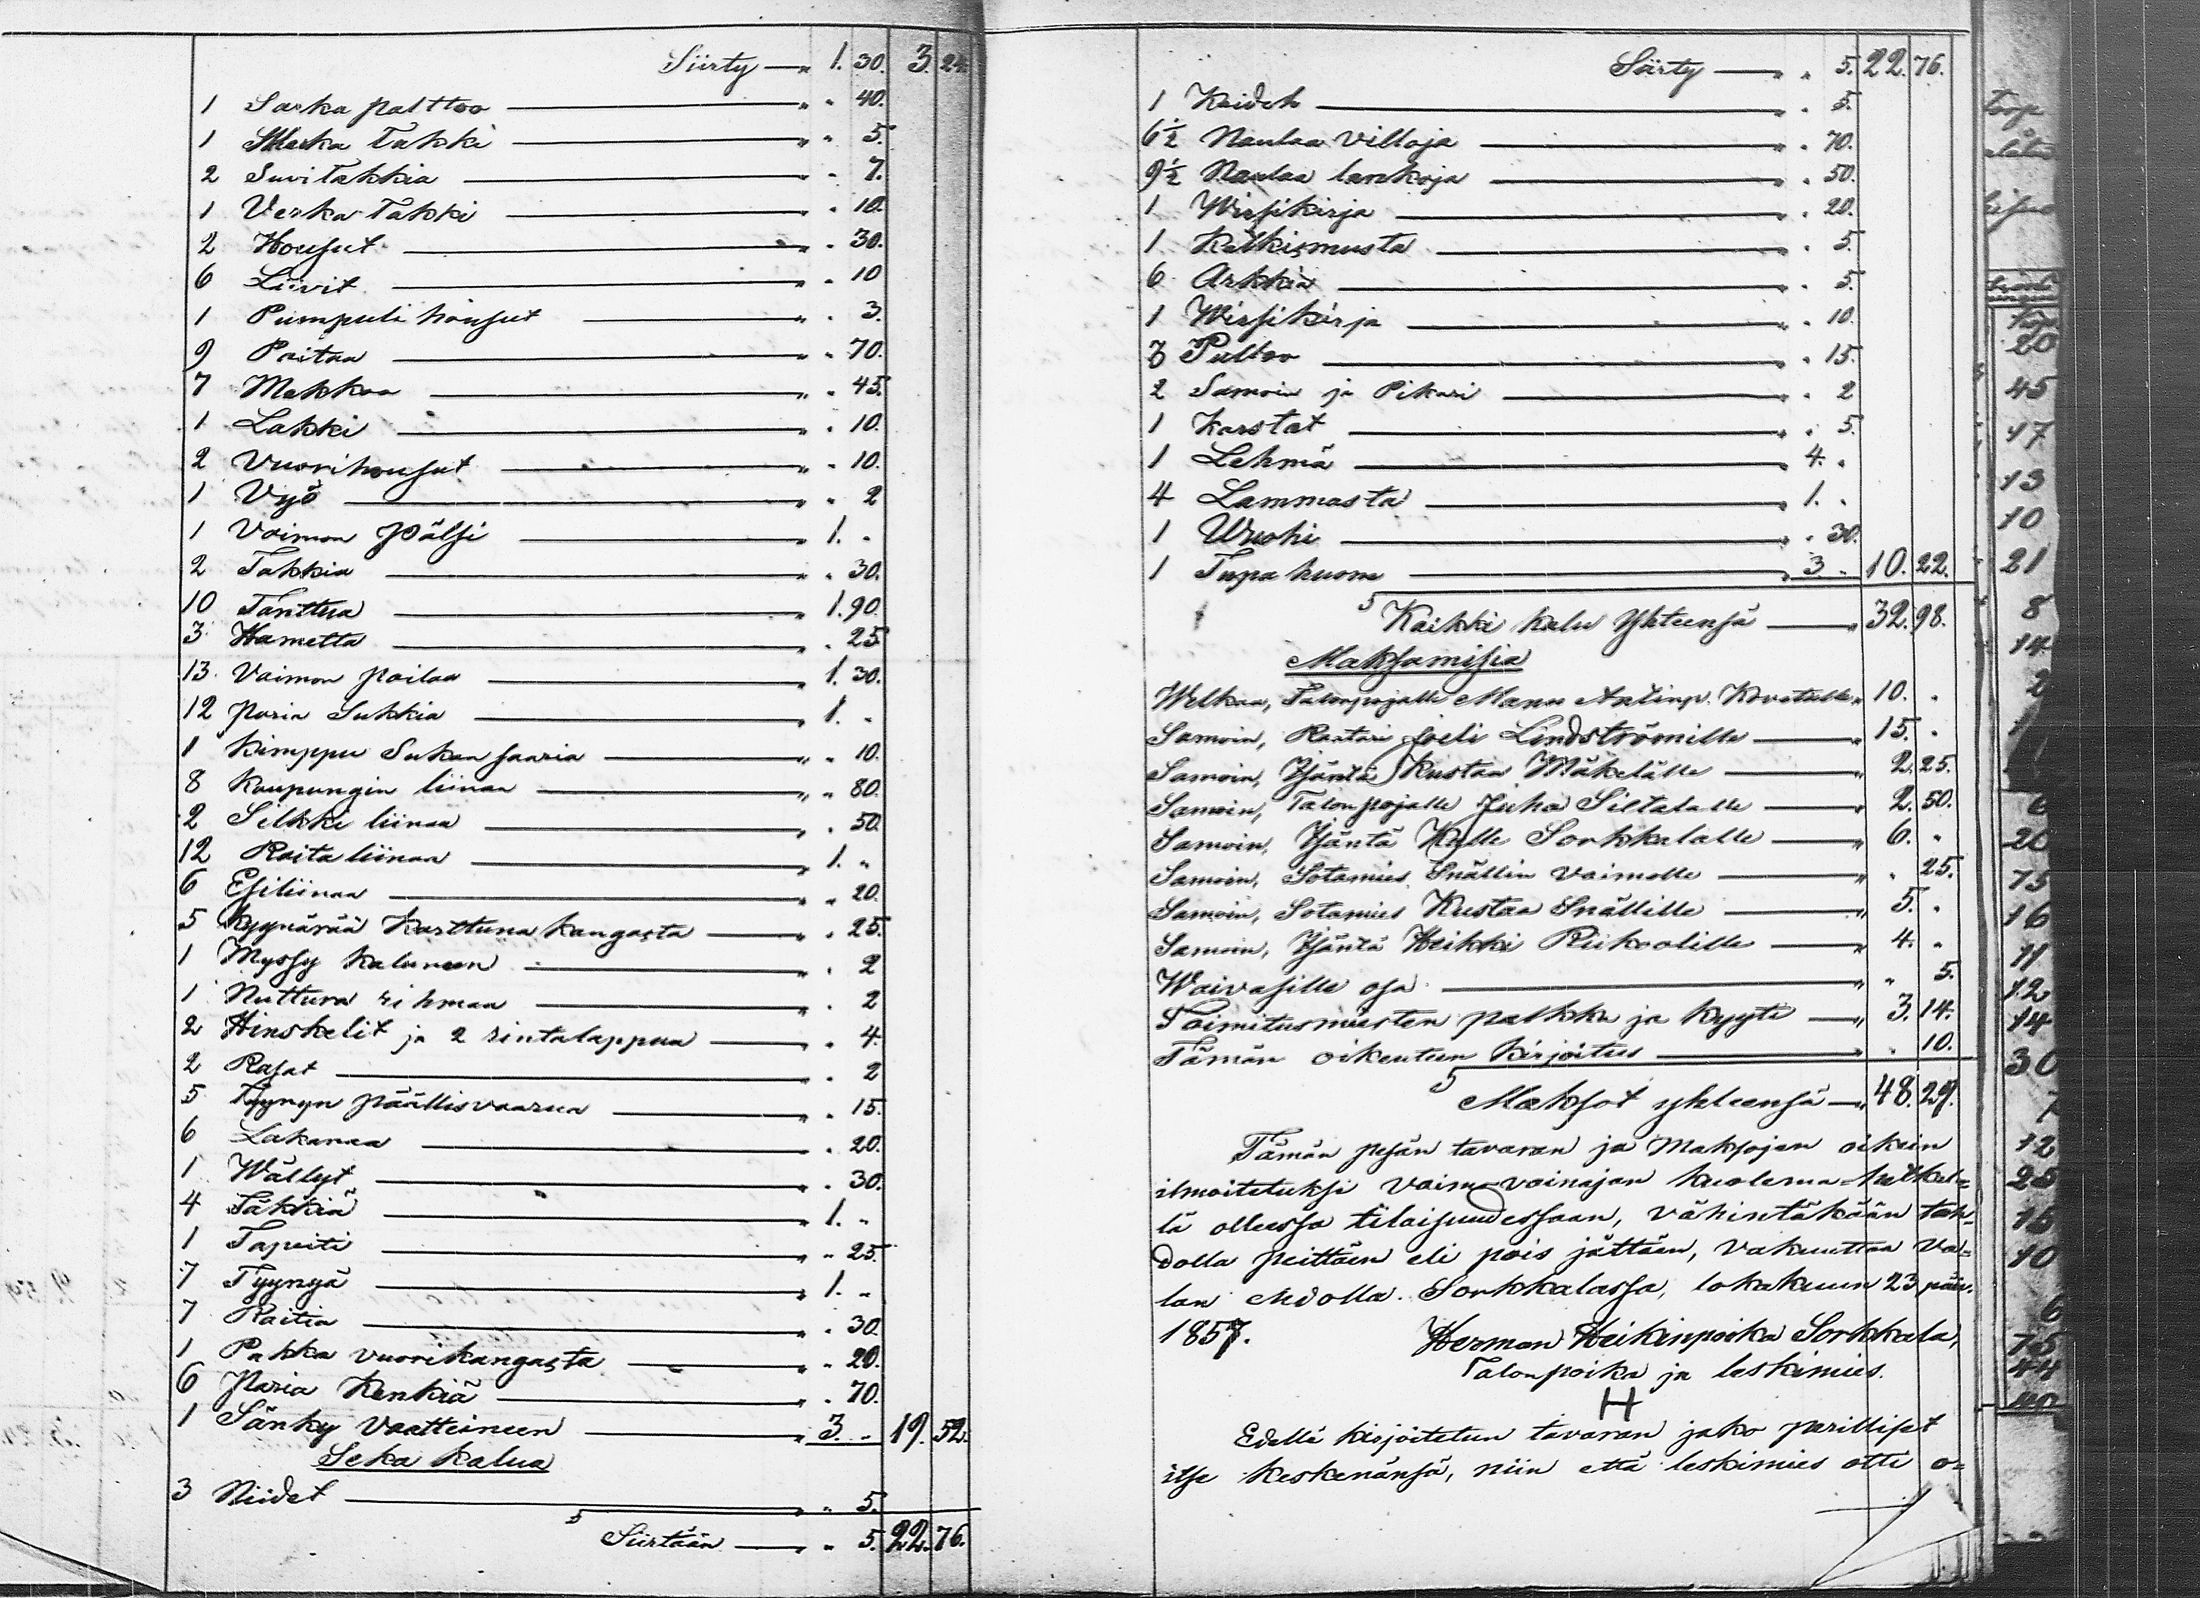 Siirty — " 1. 30. 3. 24.
1 Sarka palttoo — " " 40.
1 takki — " " 5.
2 Suvitakkia — " " 7.
1 Verka takki — " " 10.
2 Housut — " " 30.
6 Liivit — " " 10
1 Pumpuli housut — " " 3.
9 Paitaa — " " 70.
7 Mekkoa — " " 45.
1 Lakki — " " 10.
2 Vuorihousut — " " 10.
1 Vyö — " " 2
1 Vaimon Pälsi — " 1. "
2 Takkia — " " 30.
10 Tanttua — " 1. 90.
3 Hametta — " " 25
13 Vaimon paitaa — " 1. 30.
12 paria Sukkia — " 1. "
1 Kimppu Sukan saaria — " " 10.
8 Kaupungin liinaa — " " 80.
2 Silkki liinaa — " " 50.
12 Raita liinaa — " 1. "
6 Esiliinaa — " " 20.
5 Kyynärää Karttuna kangasta — " " 25.
1 Myssy kaluneen — " " 2
1 Nuttura rihmaa — " " 2
2 Hinskelit ja 2 rintalappua — " " 4.
2 Rasat — " " 2
5 Tyynyn päällisvaarua — " " 15.
6 Lakanaa — " " 20.
1 Wällyt — " " 30.
4 Täkkiä — " 1. "
1 Tapeiti — " " 25.
7 Tyynyä — " 1. "
7 Raitia — " " 30.
1 Pakka vuorikangasta — " " 20.
6 Paria Kenkiä — " " 70.
1 Sänky Vaatteineen — " 3. " 19. 52.
Seka kalua
3 Niidet — " " 5.
Siirtään — " " 5. 22. 76.
Siirty — " " 5. 22. 76.
1 Kaideh — " " 5.
6½ Naulaa Villoja — " " 70.
9½ Naulaa lankoja — " " 50.
1 Wirsikirja — " " 20.
1 Katkismusta — " " 5.
6 Arkkia — " " 5.
1 Wirsikirja — " " 10.
3 Pultoo — " " 15.
2 Samoin ja Pikari — " " 2
1 Karstat — " " 5.
1 Lehmä — " 4. "
4 Lammasta — " 1. "
1 Wuohi — " " 30.
1 Tupa huone — " 3. " 10. 22.
Kaikki kalu Yhteensä — " 32. 98.
Maksamisia
Welkaa, Talonpojalle Manu Antinp. " 10. "
Samoin, Räätäri Joeli Lindströmille — " 15. "
Samoin, Isäntä Kustaa Mäkelälle — " 2. 25.
Samoin, Talonpojalle Juha Siltalalle — " 2. 50.
Samoin, Isäntä Kalle Sorkkalalle — " 6. "
Samoin, Sotamies Snällin Vaimolle — " " 25.
Samoin, Sotamies Kustaa Snällille — " 5. "
Samoin, Isäntä Heikki — " 4. "
Waivasille osa — " " 5.
Toimitusmiesten palkka ja kyyti — " 3. 14.
Tämän oikeuteen kirjoitus — " " 10.
Maksot yhteensä — " 48. 29.
Tämän pesän tavaran ja Maksojen oikein
ilmoitetuksi Vaimovainajan kuolema-hetkel=
lä ollessa tilaisuudessaan, vähintäkään tah=
dolla peittäen eli pois jättäen, vakuuttaa va=
lan ehdolla. Sorkkalassa, lokakuun 23 päiv.
1857. Herman Heikinpoika Sorkkala,
Talonpoika ja leskimies.
H
Edellä kirjoitetun tavaran jako parilliset
itse keskenänsä, niin että leskimies otti o=
20
45
17
13
10
21
8
14
2
20
75
16
11
12
14
30
7
12
25
15
10
6
75
44